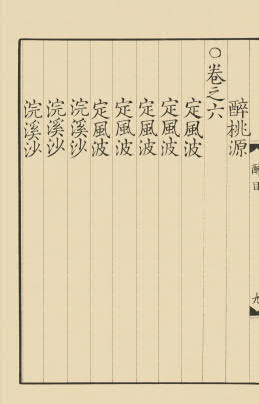 醉桃源
○卷之六
定風波
定風波
定風波
定風波
定風波
浣溪沙
浣溪沙
浣溪沙